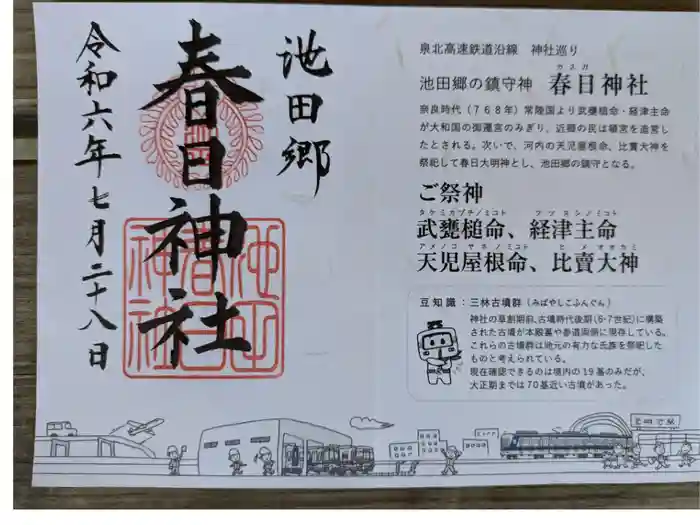 池田郷
春日神社
令和六年七月二十八日
池田
春日
神社
泉北高速鉄道沿線 神社巡り
カスガ
池田郷の鎮守神 春日神社
奈良時代(768年)常陸国より武甕槌命・経津主命
が大和国の御遷宮のみぎり、近郷の民は頓宮を造営し
たとされる。次いで、河内の天児屋根命、比賣大神を
祭祀して春日大明神とし、池田郷の鎮守となる。
ご祭神
タケミカヅチノミコト フツヌシノミコト
武甕槌命、経津主命
アメノコヤネノミコト ヒメオオカミ
天児屋根命、比賣大神
豆知識:三林古墳群(みばやしこふんぐん)
神社の草創期前、古墳時代後期(6-7世紀)に構築
された古墳が本殿墓や参道両側に現存している。
これらの古墳群は地元の有力な氏族を祭祀した
ものと考えられている。
現在確認できるのは境内の19基のみだが、
大正期までは70基近い古墳があった。